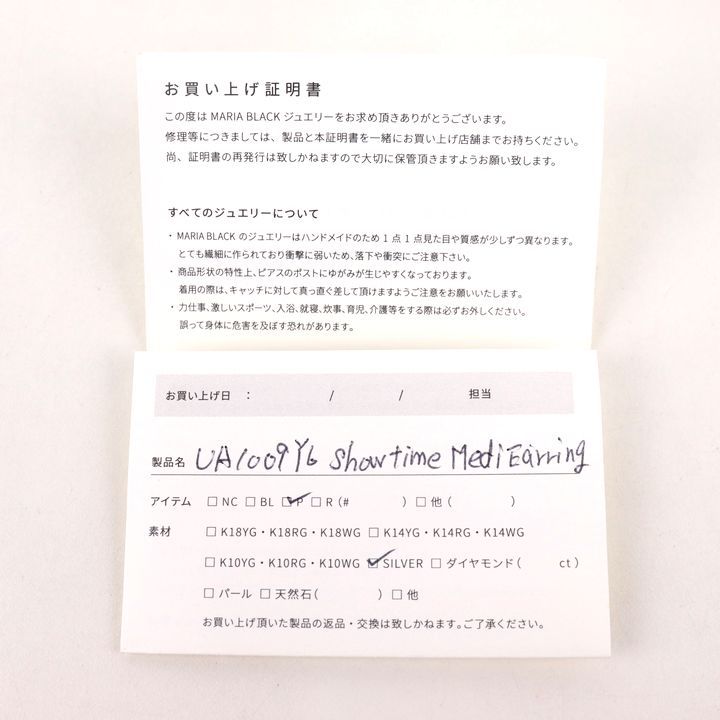 お買い上げ証明書
この度は MARIA BLACK ジュエリーをお求め頂きありがとうございます。
修理等につきましては、製品と本証明書を一緒にお買い上げ店舗までお持ちください。
尚、証明書の再発行は致しかねますので大切に保管頂きますようお願い致します。
すべてのジュエリーについて
・MARIA BLACK のジュエリーはハンドメイドのため 1 点 1 点見た目や質感が少しずつ異なります。
とても繊細に作られており衝撃に弱いため、落下や衝突にご注意下さい。
・商品形状の特性上、ピアスのポストにゆがみが生じやすくなっております。
着用の際は、キャッチに対して真っ直ぐ差して頂けますようご注意をお願いいたします。
・力仕事、激しいスポーツ、入浴、就寝、炊事、育児、介護等をする際は必ずお外しください。
誤って身体に危害を及ぼす恐れがあります。
お買い上げ日 : / / 担当
製品名 UA1009YG Showtime Medi Earring
アイテム □ NC □ BL ☑ P □ R (# ) □ 他 ( )
素材 □ K18YG・K18RG・K18WG □ K14YG・K14RG・K14WG
□ K10YG・K10RG・K10WG ☑ SILVER □ ダイヤモンド ( ct )
□ パール □ 天然石 ( ) □ 他
お買い上げ頂いた製品の返品・交換は致しかねます。ご了承ください。